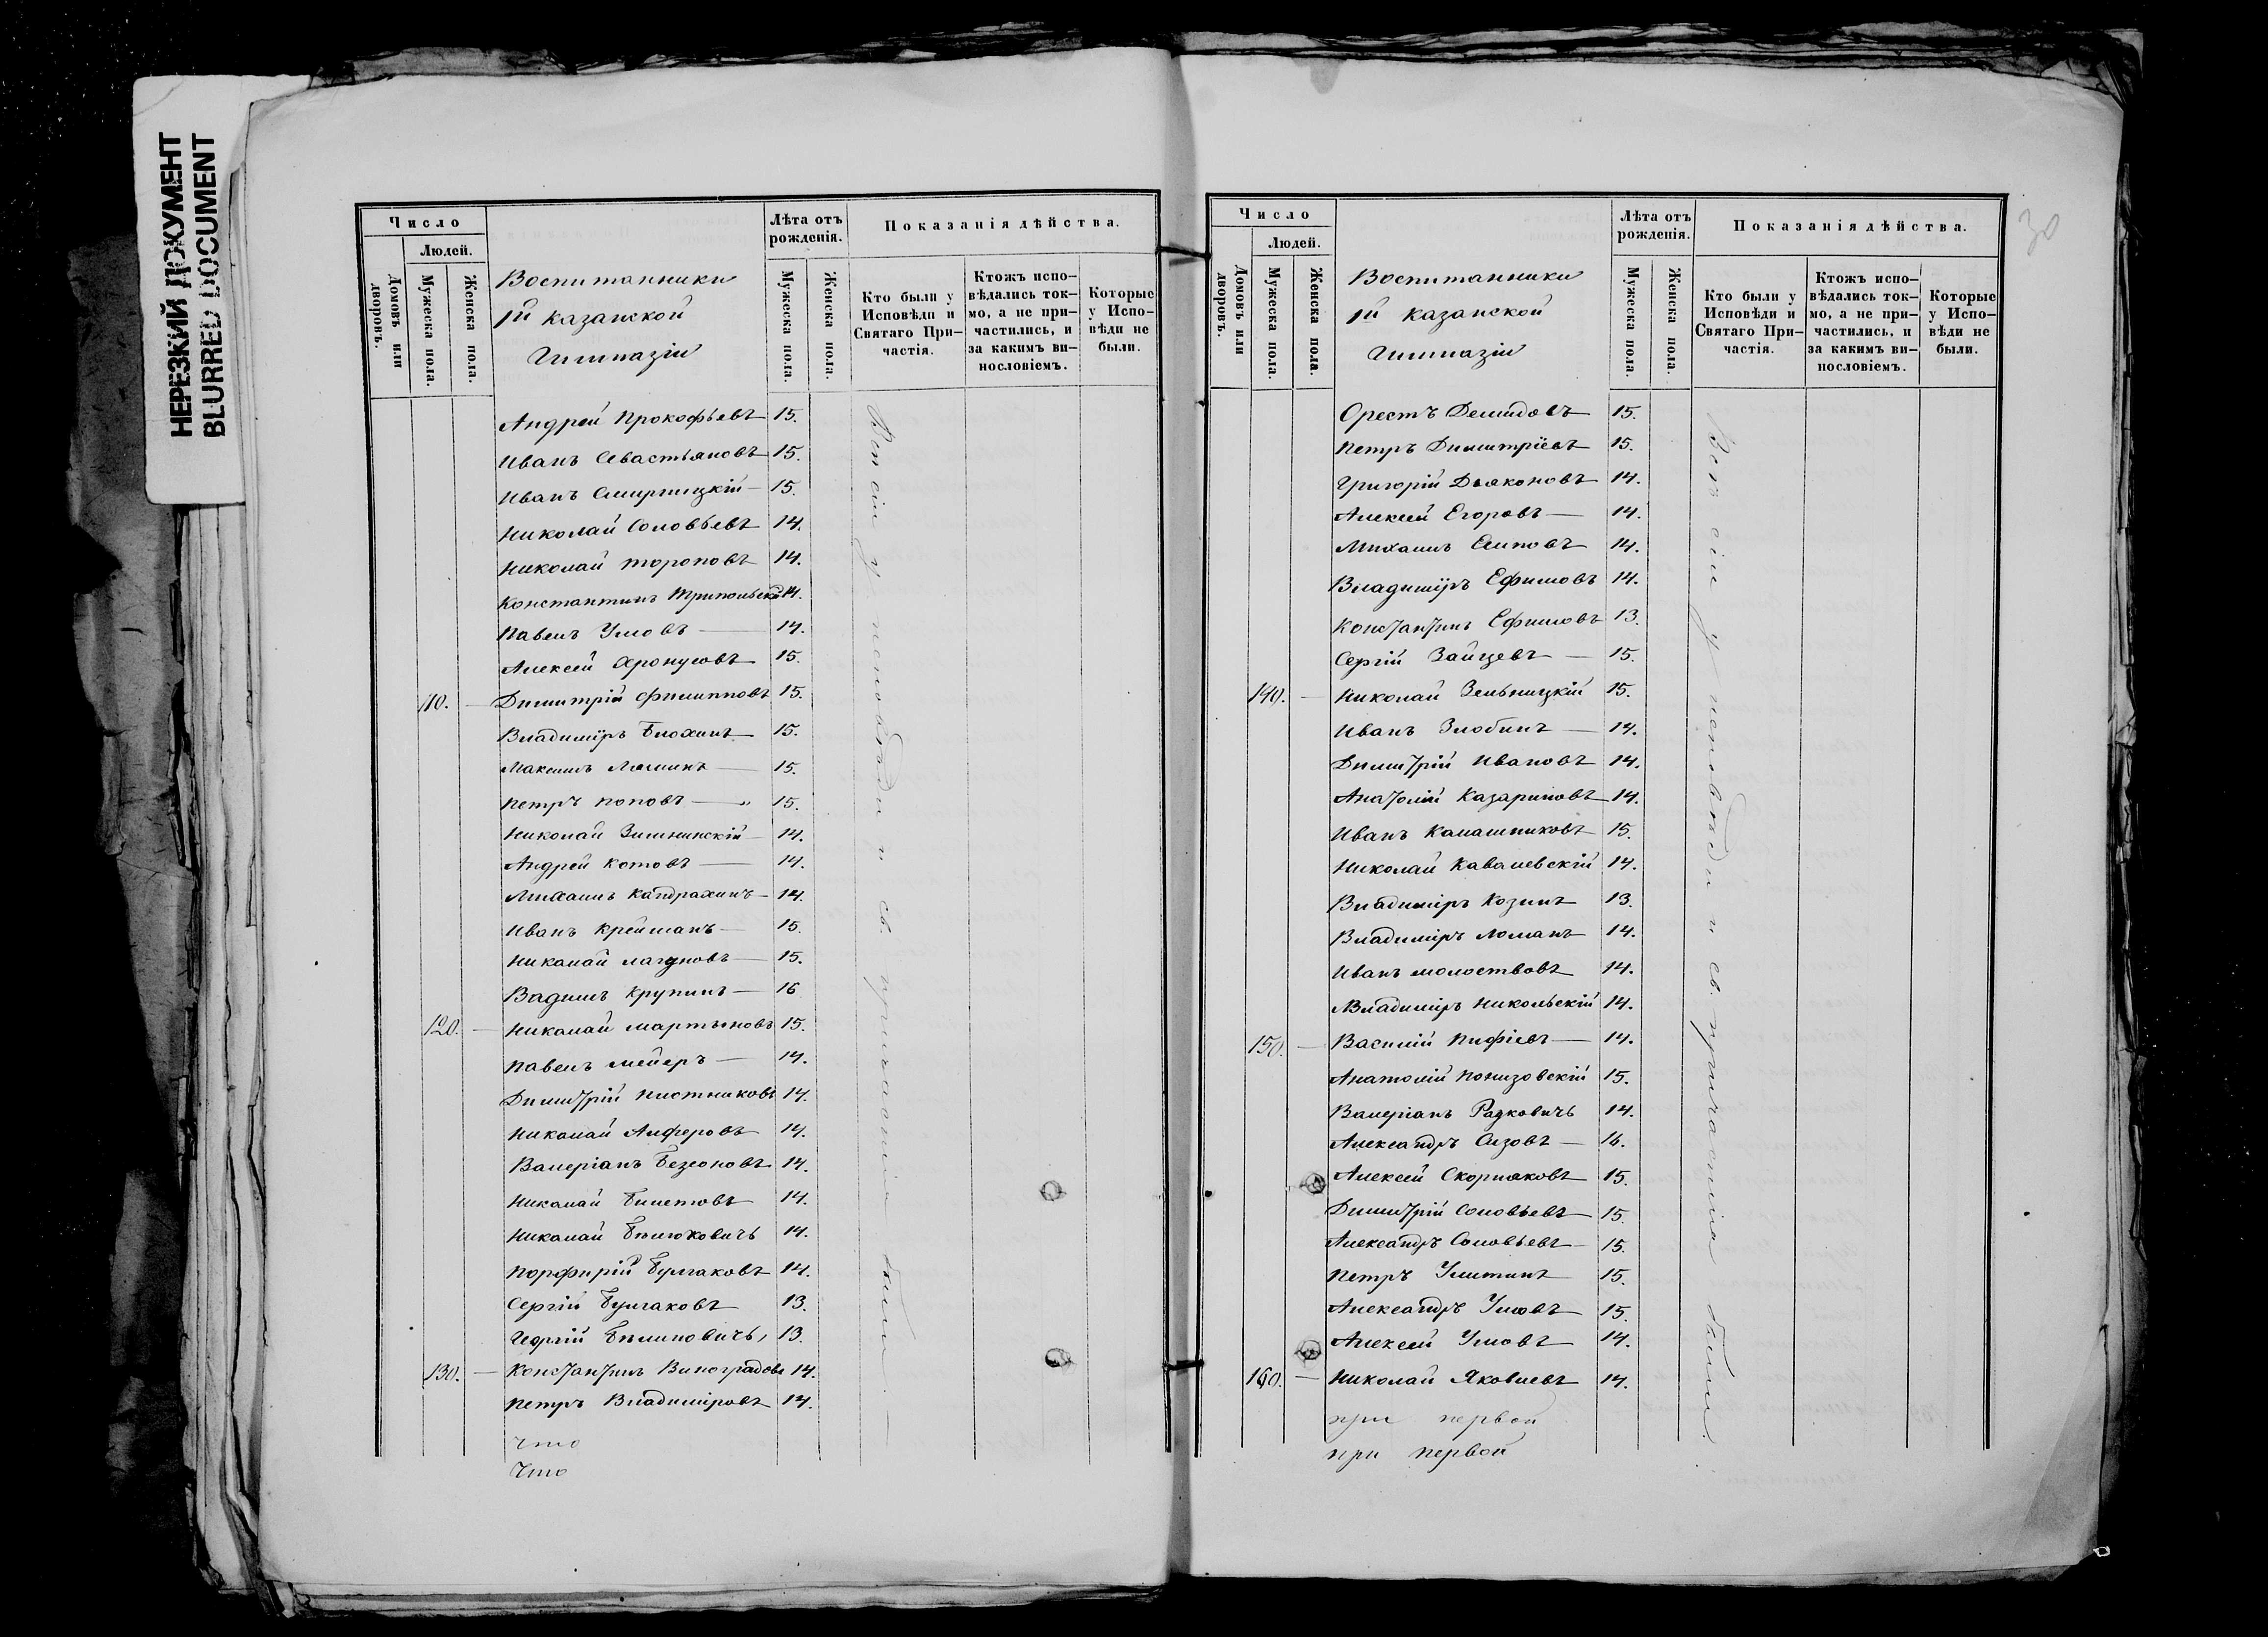 НЕРЕЗКИЙ ДОКУМЕНТ
BLURRED DOCUMENT
Число
Людей.
Домовъ или дворовъ.
Мужеска пола.
Женска пола.
Воспитанники
1й казанской
Гимназіи
Лѣта отъ рожденія.
Мужеска пола.
Женска пола.
Показанія дѣйства.
Кто были у Исповѣди и Святаго При-частія.
Ктожъ испо-вѣдались ток-мо, а не при-частились, и за какимъ ви-нословіемъ.
Которые у Испо-вѣди не были.
Андрей Прокофьевъ 15.
Иванъ Севастьяновъ 15.
Иванъ Смирницкій 15.
Николай Соловьевъ 14.
Николай Тороповъ 14.
Константинъ Трипольскій 14.
Павелъ Умовъ 14.
Алексѣй 15.
110. Димитрій Филипповъ 15.
Владиміръ Блохинъ 15.
Максимъ 15.
Петръ Поповъ 15.
Николай Зимнинскій 14.
Андрей Котовъ 14.
Михаилъ Кандрахинъ 14.
Иванъ Крейманъ 15.
Николай 15.
Вадимъ Крупинъ 16
120. Николай Мартыновъ 15.
Павелъ Мейеръ 14.
Димитрій Пистниковъ 14.
Николай Алферовъ 14.
Валеріанъ Безсоновъ 14.
Николай Билетовъ 14.
Николай Бѣлюковичъ 14.
Порфирій Булгаковъ 14.
Сергій Булгаковъ 13.
Георгій Бѣлиновичъ, 13.
130. Константинъ Виноградовъ 14.
Петръ Владиміровъ 14.
Что
Что
Всѣ сіи у исповѣди и св. причастія были.
30
Число
Людей.
Домовъ или дворовъ.
Мужеска пола.
Женска пола.
Воспитанники
1й казанской
Гимназіи
Лѣта отъ рожденія.
Мужеска пола.
Женска пола.
Показанія дѣйства.
Кто были у Исповѣди и Святаго При-частія.
Ктожъ испо-вѣдались ток-мо, а не при-частились, и за какимъ ви-нословіемъ.
Которые у Испо-вѣди не были.
Орестъ Демидовъ 15.
Петръ Димитріевъ 15.
Григорій Дьяконовъ 14.
Алексѣй Егоровъ 14.
Михаилъ Еиповъ 14.
Владиміръ Ефимовъ 14.
Константинъ Ефимовъ 13.
Сергій Зайцевъ 15.
140. Николай Зельницкій 15.
Иванъ Злобинъ 14.
Димитрій Ивановъ 14.
Анатолій Казариновъ 14.
Иванъ Калашниковъ 15.
Николай Кавалевскій 14.
Владиміръ Козинъ 13.
Владиміръ Ломанъ 14.
Иванъ Молоствовъ 14.
Владиміръ Никольскій 14.
150. Василій Пифіевъ 14.
Анатолій Понизовскій 15.
Валеріанъ Радковичъ 14.
Александръ Сизовъ 16.
Алексѣй Скорняковъ 15.
Димитрій Соловьевъ 15.
Александръ Соловьевъ 15.
Петръ Улитинъ 15.
Александръ Умовъ 15.
Алексѣй Умовъ 14.
160. Николай Яковлевъ 14.
при первой
при первой
Всѣ сіи у исповѣди и св. причастія были.